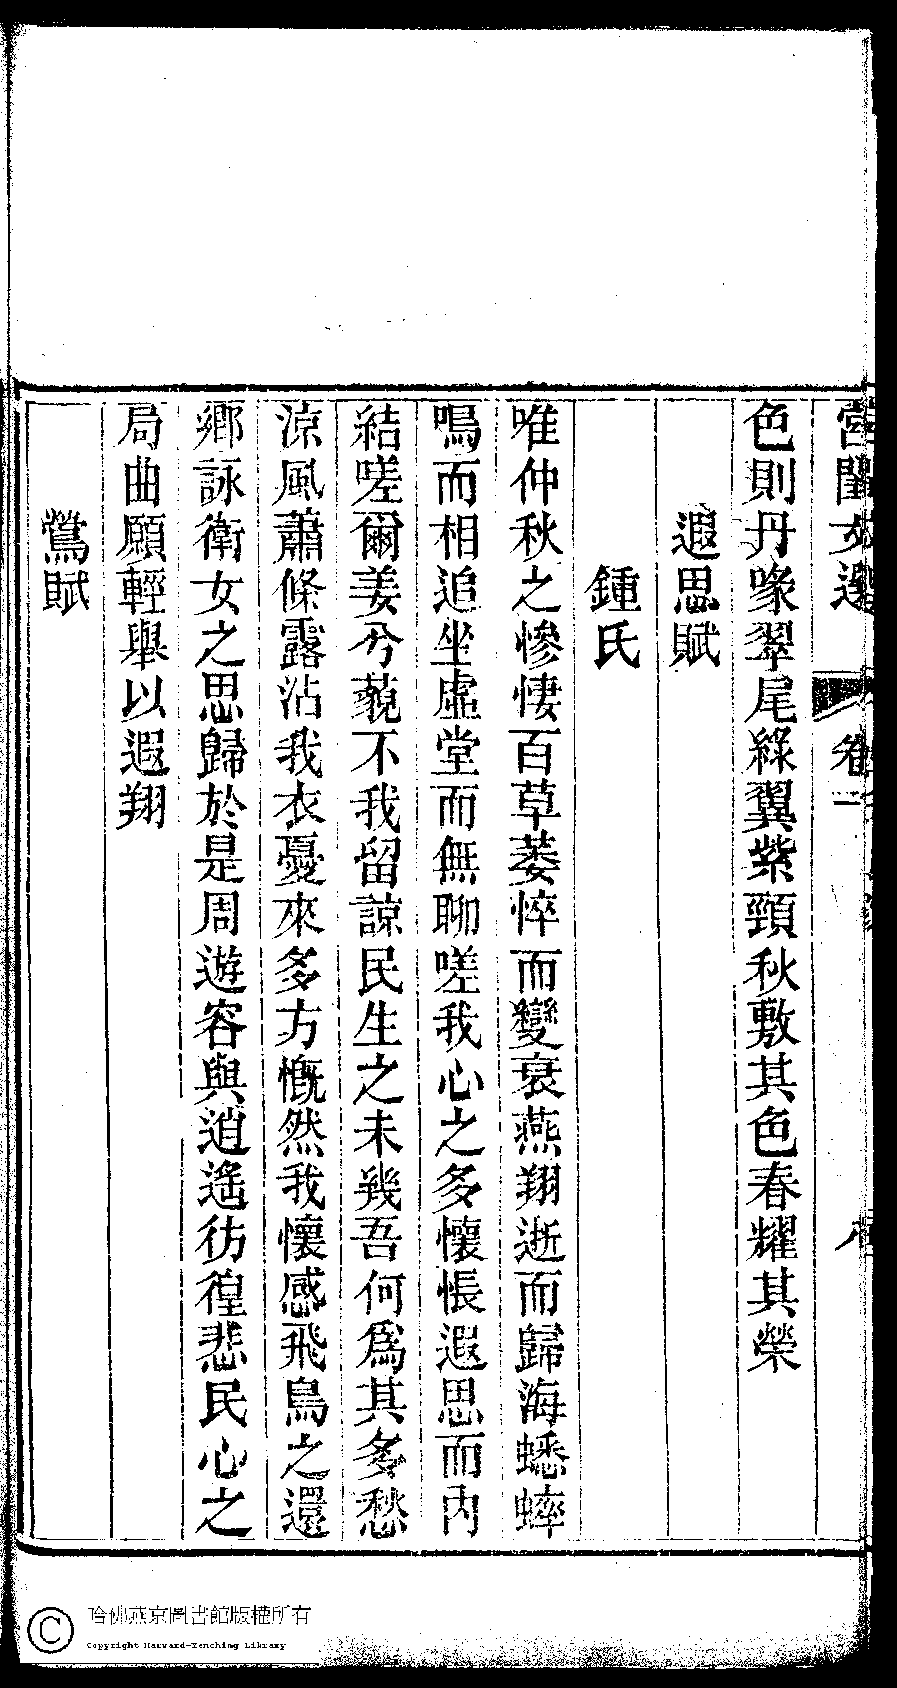 宮閨文選 卷一 八
色則丹喙翠尾綠翼紫頸秋敷其色春耀其榮
遐思賦
鍾氏
唯仲秋之慘悽百草萎悴而變衰燕翔逝而歸海蟋蟀
鳴而相追坐虛堂而無聊嗟我心之多懷悵遐思而內
結嗟爾姜兮藐不我留諒民生之未幾吾何爲其多愁
涼風蕭條露沾我衣憂來多方慨然我懷感飛鳥之還
鄉詠衛女之思歸於是周遊容與逍遙彷徨悲民心之
局曲願輕舉以遐翔
鶯賦
哈佛燕京圖書館版權所有
Copyright Harvard-Yenching Library